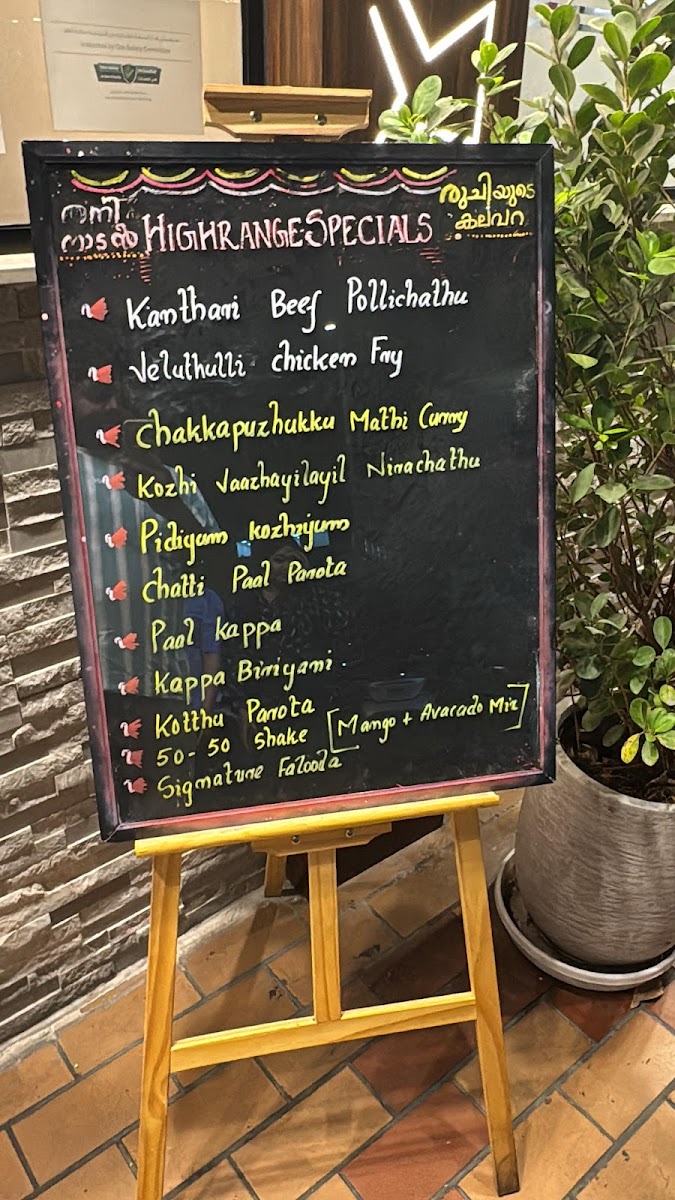 Inspected by the Safety Committee
തനി
നാടൻ
HIGHRANGE SPECIALS
രുചിയുടെ
കലവറ
Kanthari Beef Pollichathu
Veluthulli chicken Fry
Chakkapuzhukku Mathi Curry
Kozhi Vaazhayilayil Nirachathu
Pidiyum kozhiyum
Chatti Paal Parota
Paal kappa
Kappa Birriyani
Kotthu Parota
50-50 Shake [Mango + Avarado Mix]
Signature Falooda